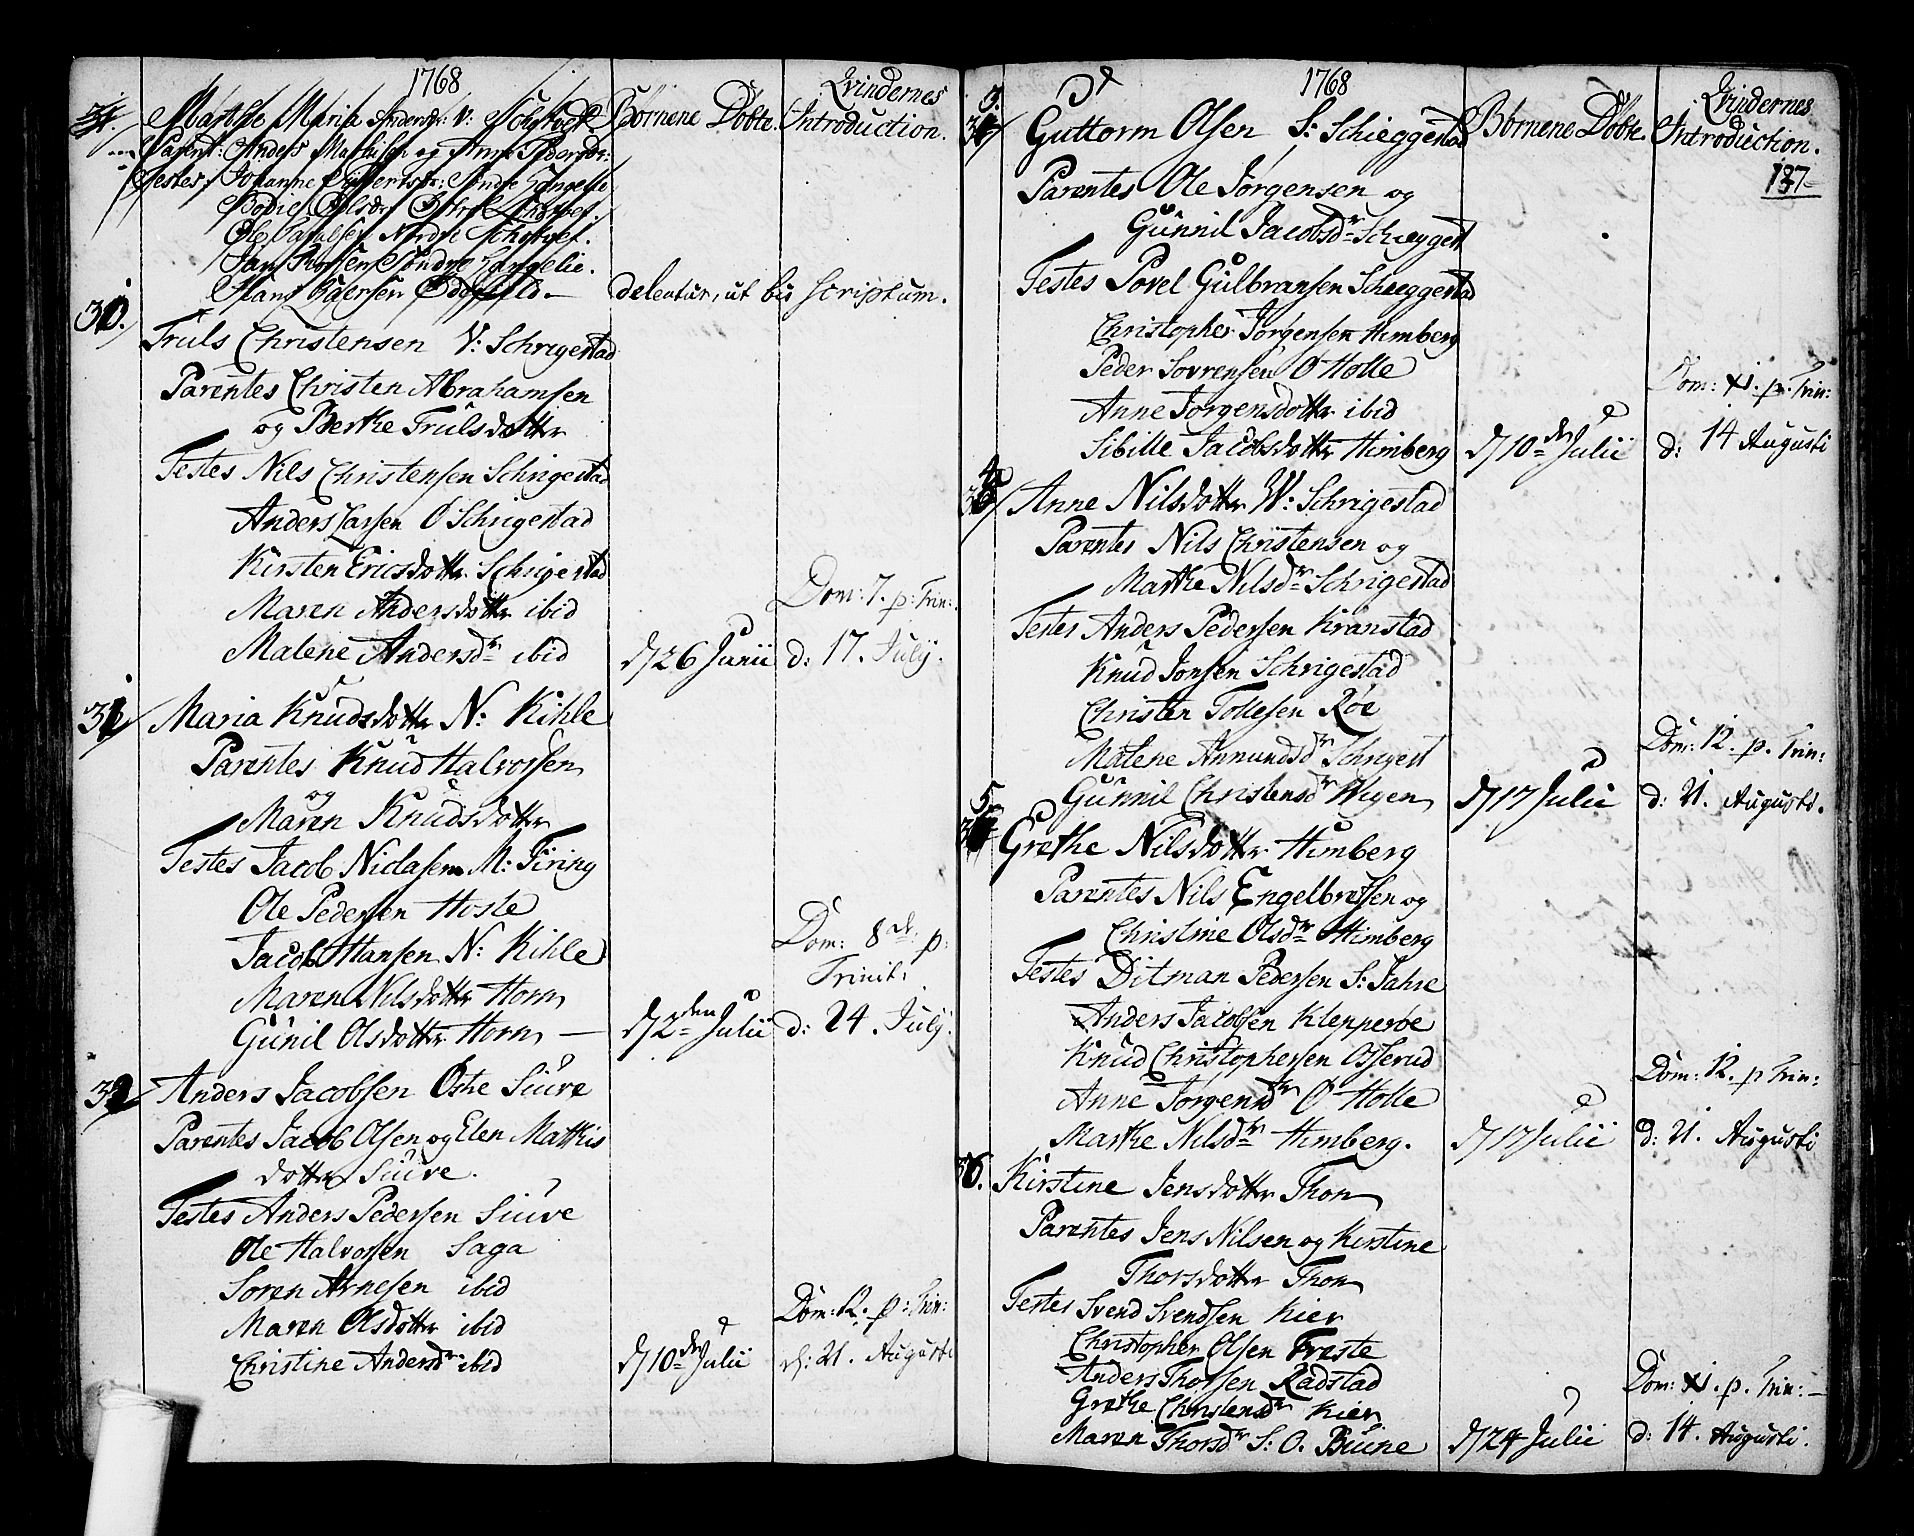 1768
Børnene Døbte.
Qvindernes
Introduction.
Marthe Maria Andersdr: V:
Parent: Anders Mathisen og Anne
Testes: Johanne Søndre
Bodiel Olsdr
Ole Nordre
Søndre
Hans
deleatur, ut bis scriptum.
30.
Truls Christensen V: Schrigestad
Parentes Christen Abrahamsen
og Berthe Trulsdotter
Testes Nils Christensen Schrigestad
Anders Larsen Ø Schrigestad
Kirsten Ericsdotter Schrigestad
Maren Andersdotter ibid
Malene Andersdr ibid
d 26 Junii
Dom: 7. p: Trin:
d: 17. Julij.
31
Maria Knudsdotter N: Kihle
Parentes Knud Halvorsen
og
Maren Knudsdotter
Testes Jacob Niclasen M: Tiring
Ole Pedersen Hosle
Jacob Hansen N: Kihle
Maren Nilsdotter Horn
Gunil Olsdotter Horn —
d 2den Julii
Dom: 8 p:
Trinit:
d: 24. July.
32
Anders Jacobsen Østre Siuve
Parentes Jacob Olsen og Elen Mathis
dotter Siuve.
Testes Anders Pedersen Siuve
Ole Halvorsen Saga
Soren Arnesen ibid
Maren Olsdotter ibid
Christine Andersdr ibid
d 10de Julii
Dom: 12. p: Trin:
d: 21. Augusti
1768
Børnene Døbte.
Qvindernes
Introduction.
187
33
Guttorm Olsen S: Schieggestad
Parentes Ole Jørgensen og
Gunnil Jacobsdr Schieggest
Testes Povel Gulbransen Schieggestad
Christopher Jørgensen Himberg
Peder Sovrensen Ø Holle
Anne Jorgensdotter ibid
Sibille Jacobsdotter Himberg
d 10de Julii
Dom: XI. p. Trin:
d: 14 Augusti
34
Anne Nilsdotter W: Schrigestad
Parentes Nils Christensen og
Marthe Nilsdr Schrigestad
Testes Anders Pedersen Kranstad
Knud Jonsen Schrigestad
Christen Tollesen Røe
Malene Anmundsdr Schrigest
Gunnil Christensdr Wegen
d 17 Julii
Dom: 12. p. Trin:
d: 21. Augusti.
35
Grethe Nilsdotter Himberg
Parentes Nils Engelbretsen og
Christine Olsdr Himberg
Testes Ditman Pedersen S: Jahre
Anders Jacobsen Klepperøe
Knud Christophersen Osserud
Anne Jørgensdr Ø Holle
Marthe Nilsdr Himberg.
d 17 Julii
Dom: 12. p Trin:
d: 21. Augusti
36.
Kirstine Jensdotter Thon
Parentes Jens Nilsen og Kirstine
Thorsdotter Thon
Testes Svend Svendsen Kier
Christopher Olsen Freste
Anders Thorsen Radstad
Grethe Christensdr Kier
Maren Thorsdr S: O. Buine
d 24 Julii
Dom: XI. p. Trin: —
d: 14. Augusti.